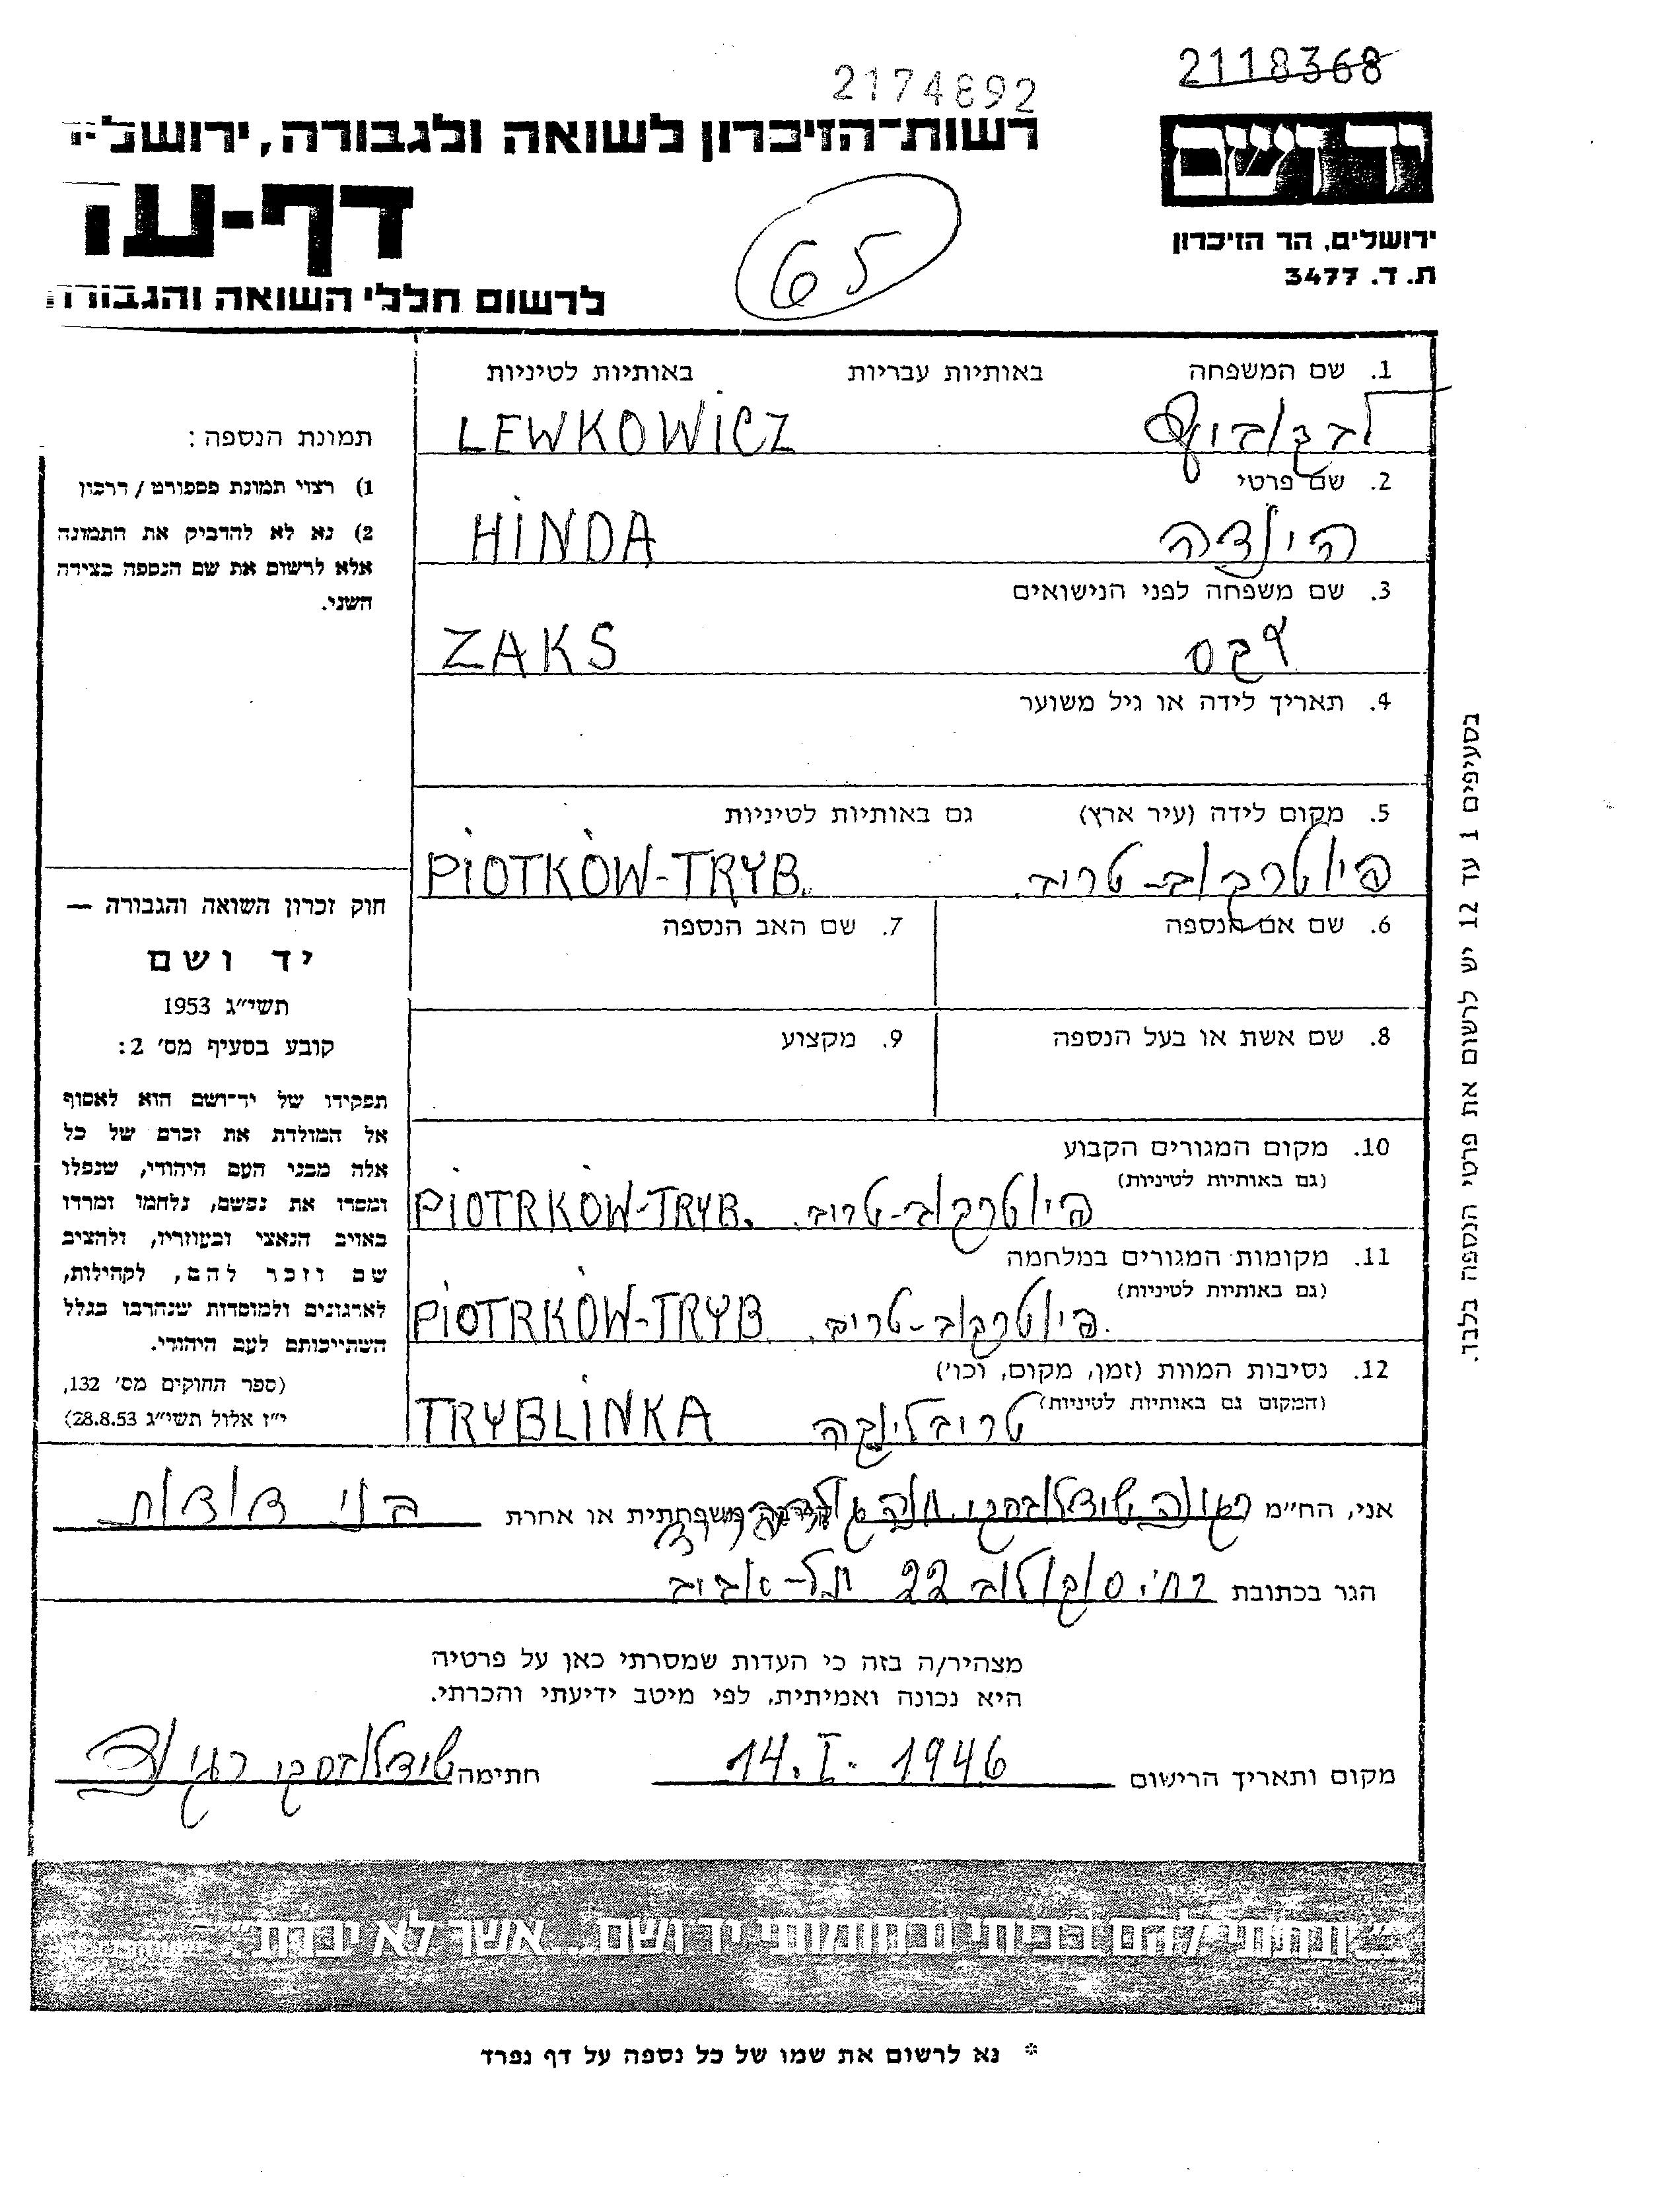 2118368
2174892
רשות־הזיכרון לשואה ולגבורה, ירושל
יד ושם
דף-ע
65
ירושלים, הר הזיכרון
ת. ד. 3477
לרשום חללי השואה והגבורה
1. שם המשפחה באותיות עבריות באותיות לטיניות
לבקוביץ LEWKOWICZ
2. שם פרטי
הינדה HINDA
3. שם משפחה לפני הנישואים
זקס ZAKS
4. תאריך לידה או גיל משוער
5. מקום לידה (עיר ארץ) גם באותיות לטיניות
פיוטרקוב-טריב. PIOTKÓW-TRYB.
6. שם אם הנספה 7. שם האב הנספה
8. שם אשת או בעל הנספה 9. מקצוע
10. מקום המגורים הקבוע
(גם באותיות לטיניות)
פיוטרקוב-טריב. PIOTRKÓW-TRYB.
11. מקומות המגורים במלחמה
(גם באותיות לטיניות)
פיוטרקוב-טריב. PIOTRKÓW-TRYB
12. נסיבות המוות (זמן, מקום, וכו')
(המקום גם באותיות לטיניות)
טריבלינקה TRYBLINKA
תמונת הנספה:
1) רצוי תמונת פספורט/דרכון
2) נא לא להדביק את התמונה
אלא לרשום את שם הנספה בצידה
השני.
חוק זכרון השואה והגבורה —
יד ושם
תשי״ג 1953
קובע בסעיף מס׳ 2:
תפקידו של יד־ושם הוא לאסוף
אל המולדת את זכרם של כל
אלה מבני העם היהודי, שנפלו
ומסרו את נפשם, נלחמו ומרדו
באויב הנאצי ובעוזריו, ולהציב
שם וזכר להם, לקהילות,
לארגונים ולמוסדות שנחרבו בגלל
השתייכותם לעם היהודי.
(ספר החוקים מס׳ 132,
י״ז אלול תשי״ג 28.8.53)
בסעיפים 1 עד 12 יש לרשום את פרטי הנספה בלבד.
אני, הח״מ קרבה משפחתית או אחרת בני דודות
הגר בכתובת רח'. סוקולוב 22 תל-אביב
מצהיר/ה בזה כי העדות שמסרתי כאן על פרטיה
היא נכונה ואמיתית, לפי מיטב ידיעתי והכרתי.
מקום ותאריך הרישום 14.I.1946 חתימה
״...ונתתי להם בביתי ובחומותי יד ושם...אשר לא יכרת״.
* נא לרשום את שמו של כל נספה על דף נפרד